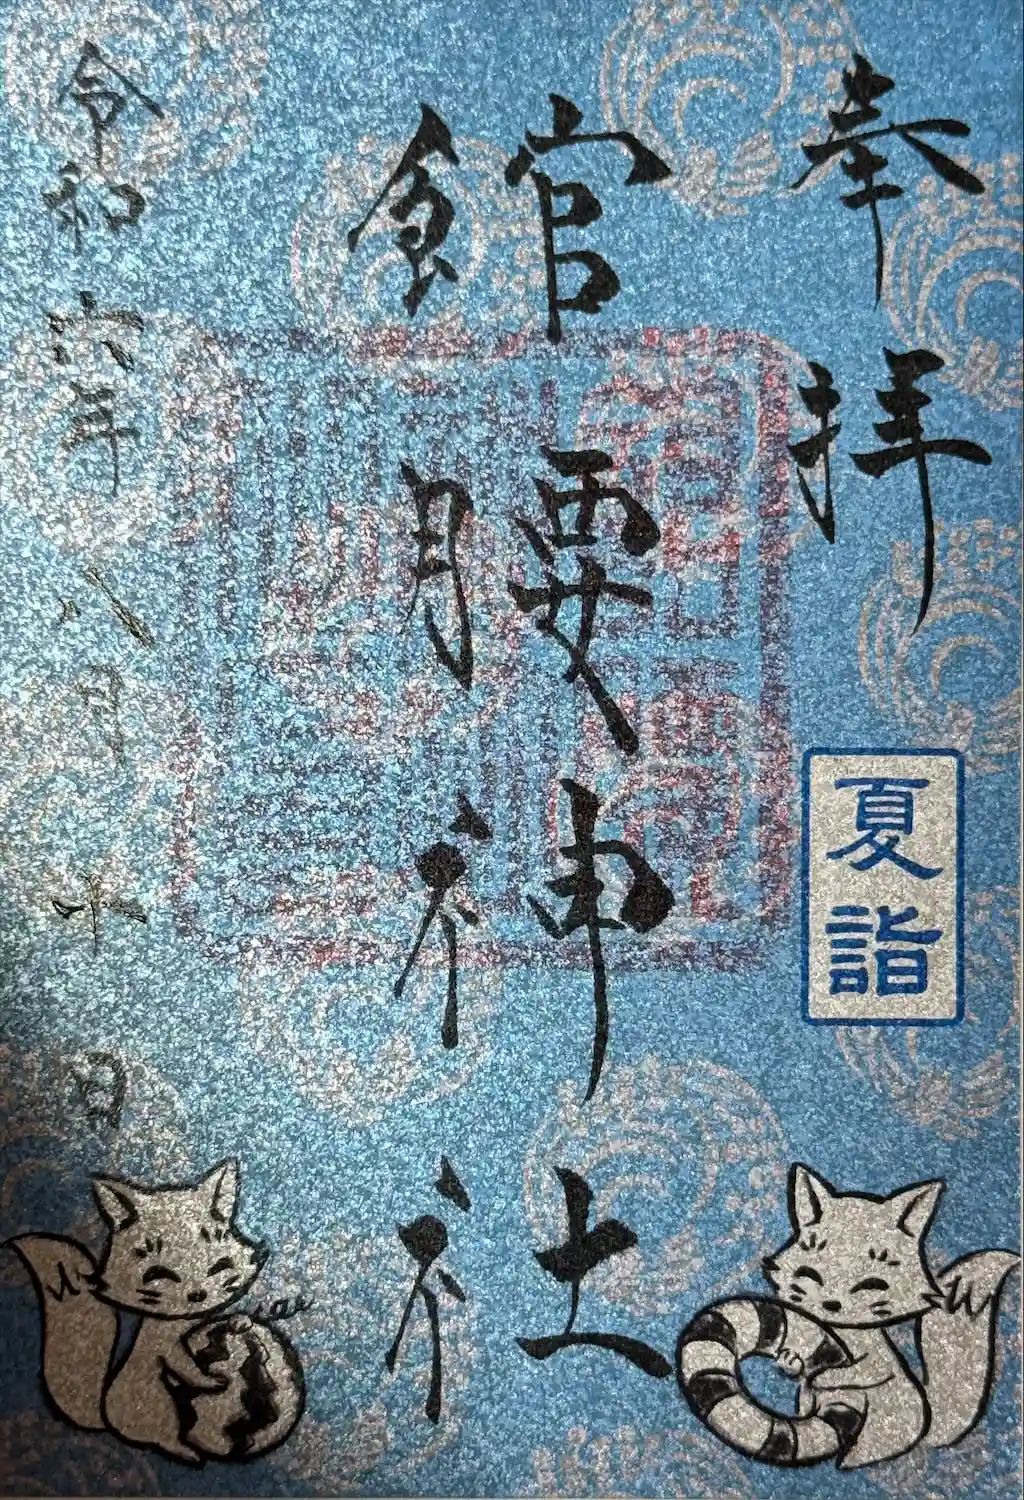 奉拝
夏詣
館腰神社
令和六年八月十日